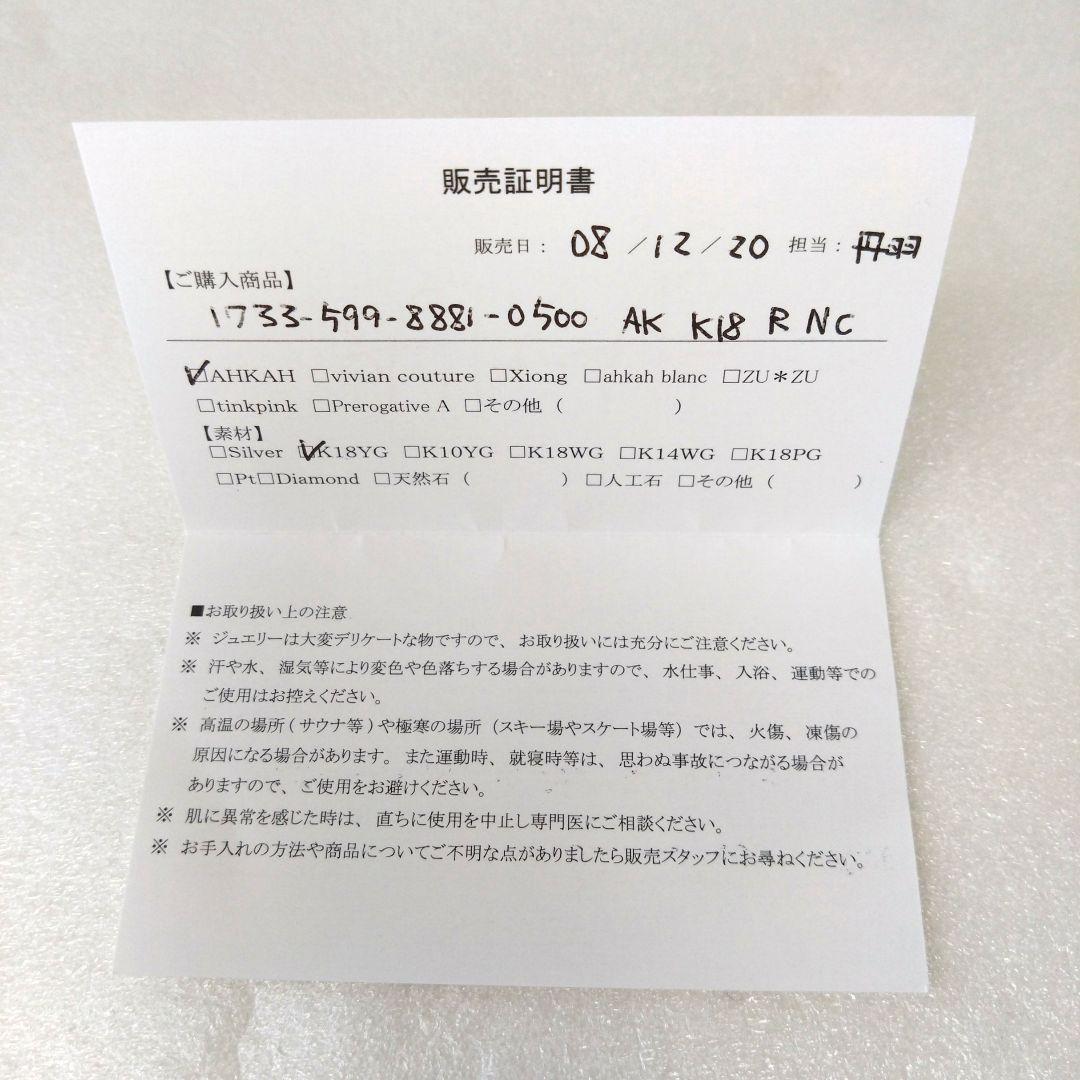 販売証明書
販売日： 08 ／12／20 担当：丹羽
【ご購入商品】
1733-599-8881-0500 AK K18 R NC
☑AHKAH □vivian couture □Xiong □ahkah blanc □ZU＊ZU
□tinkpink □Prerogative A □その他（　　　　　）
【素材】
□Silver ☑K18YG □K10YG □K18WG □K14WG □K18PG
□Pt□Diamond □天然石（　　　　　）□人工石 □その他（　　　　　）
■お取り扱い上の注意
※ ジュエリーは大変デリケートな物ですので、お取り扱いには充分にご注意ください。
※ 汗や水、湿気等により変色や色落ちする場合がありますので、水仕事、入浴、運動等での
ご使用はお控えください。
※ 高温の場所(サウナ等)や極寒の場所（スキー場やスケート場等）では、火傷、凍傷の
原因になる場合があります。また運動時、就寝時等は、思わぬ事故につながる場合が
ありますので、ご使用をお避けください。
※ 肌に異常を感じた時は、直ちに使用を中止し専門医にご相談ください。
※ お手入れの方法や商品についてご不明な点がありましたら販売スタッフにお尋ねください。